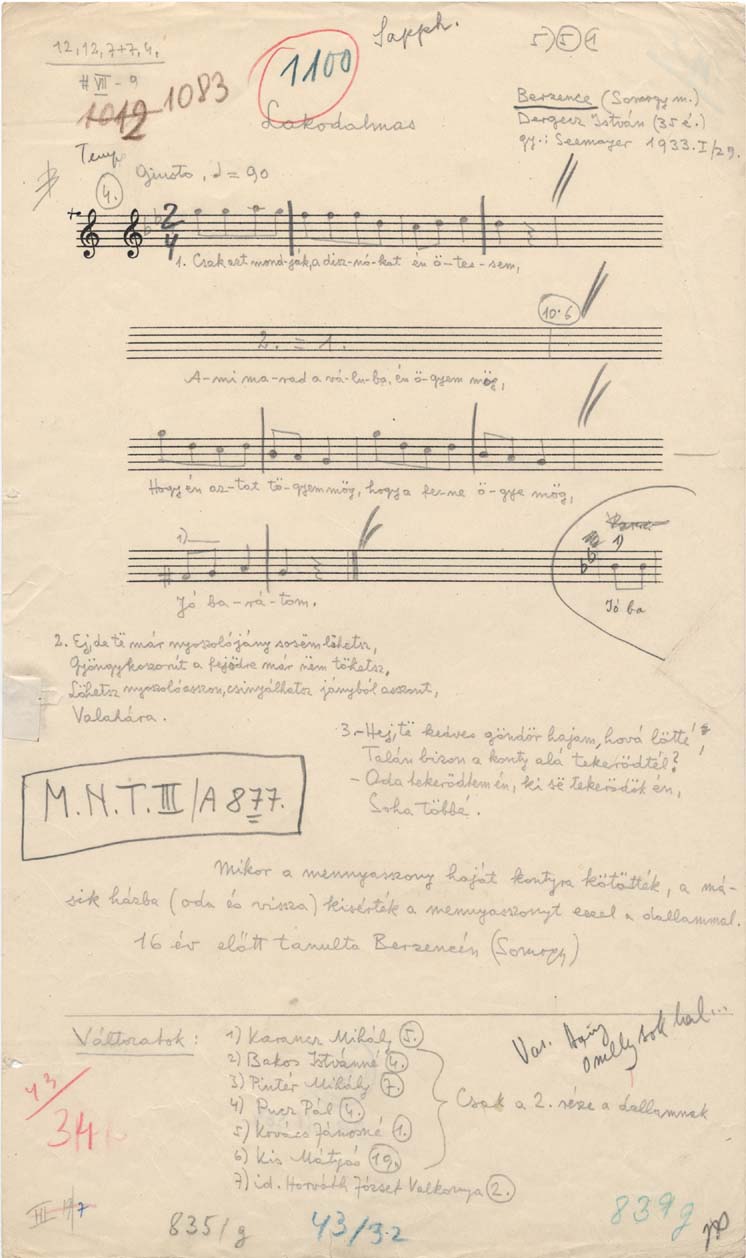 12, 12, 7+7, 4,
# VII - 9
1012 1083
1100
Sapph.
5) 5 (1
Berzence (Somogy m.)
Dergecz István (35 é.)
gy.: Seemayer 1933. I/29.
Lakodalmas
Tempo
Giusto, = 90
4.
2
4
1. Csak azt mond-ják, a disz-nó-kat én ö-tes-sem,
10·6
2. = 1.
A-mi ma-rad a vá-lu-ba, én ö-gyem mög,
Hogy én az-tat tö-gyem mög, hogy a fez-ne ö-gye mög,
1)
1)
Jó ba-rá-tom.
Jó ba
2. Ej, de të már nyoszolójány sosëm löhetsz,
Gyöngykoszorút a fejödre már nëm töhetsz,
Löhetsz nyoszolóasszon, csinyálhatsz jányból asszont,
Valahára.
3. - Hej, të kedves göndör hajam, hová lötté?
Talán bizon a konty alá tekerödtél?
- Oda tekerödtem én, ki së tekerödök én,
Soha többé.
M.N.T. III/A 877.
Mikor a mennyasszony haját kontyra kötötték, a má-
sik házba (oda és vissza) kisérték a mennyasszonyt ezzel a dallammal.
16 év előtt tanulta Berzencén (Somogy)
Változatok:
1) Karancz Mihály 5.
2) Bakos Istvánné 4.
3) Pintér Mihály 7.
4) Pucz Pál 4.
5) Kovács Jánosné 1.
6) Kis Mátyás 19.
7) id. Horváth József Valkonya 2.
Csak a 2. része a dallamnak
Var.
sok hal...
43/
34
III 17/7
835/g
43/32
839g